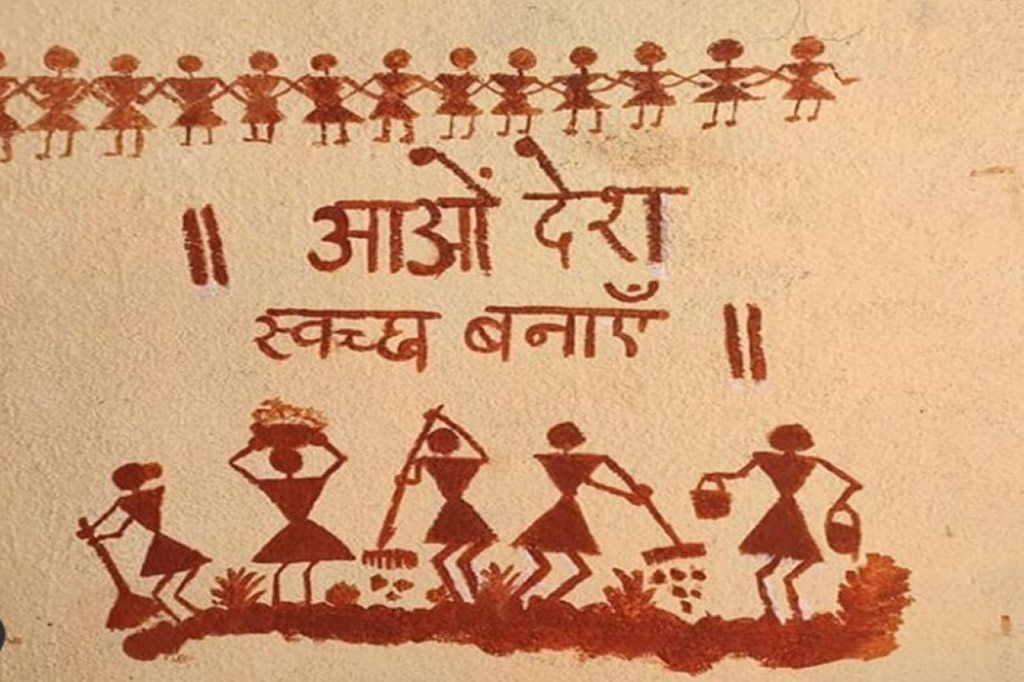 ॥ आओं देश
स्वच्छ बनाएँ ॥